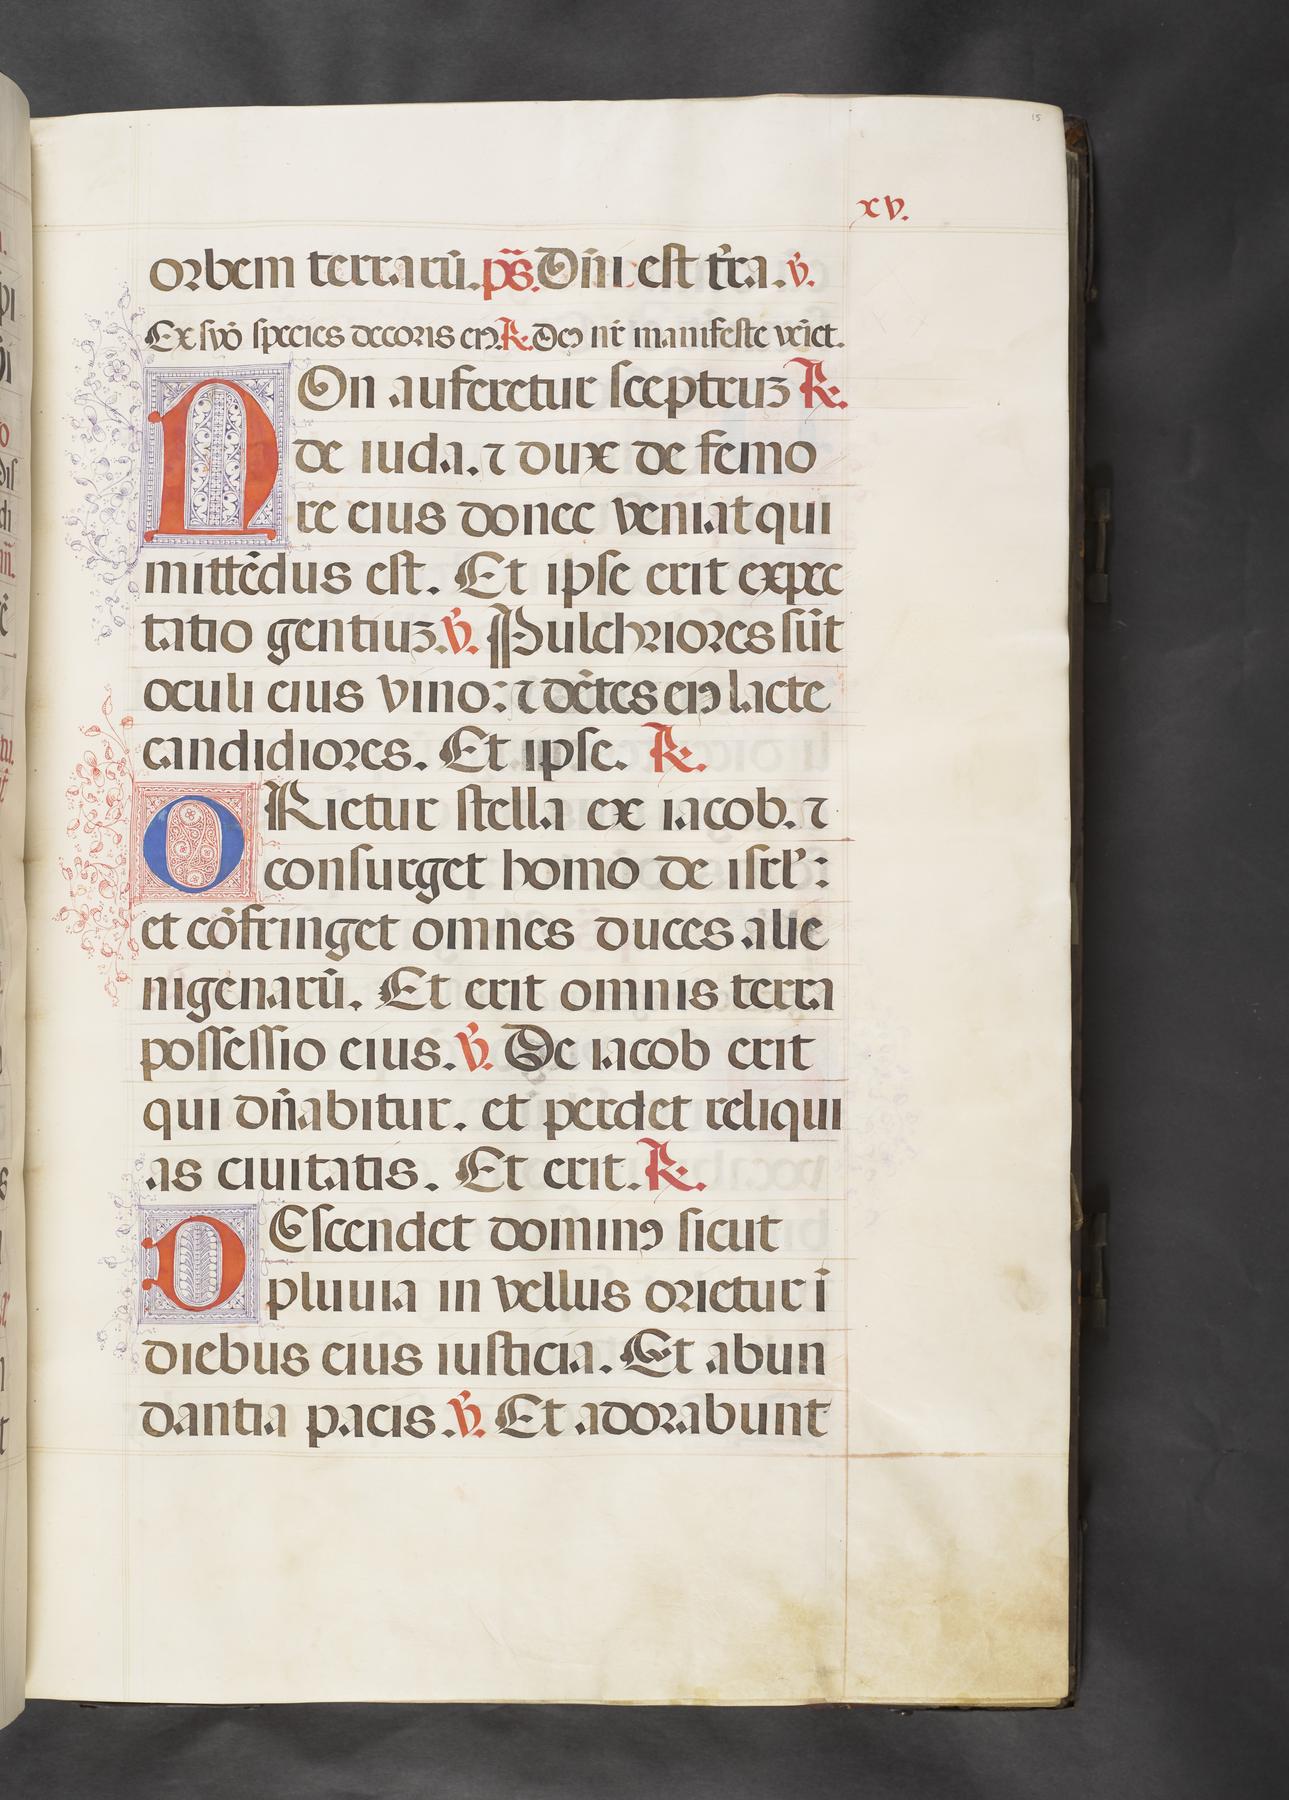 15
xv.
orbem terrarū. ps̄. Dn̄i est tr̄a. ꝟ.
Ex syō species decoris eꝰ ℟. Deꝰ nr̄ manifeste veīet.
NOn auferetur sceptruꝫ ℟.
de iuda. ⁊ dux de femo
re eius donec veniat qui
mittēdus est. Et ipse erit expec
tatio gentiuꝫ. ꝟ. Pulchriores sūt
oculi eius vino: ⁊ dētes eꝰ lacte
candidiores. Et ipse. ℟.
ORietur stella ex iacob. ⁊
consurget homo de isrl̓:
et cōfringet omnes duces alie
nigenarū. Et erit omnis terra
possessio eius. ꝟ. De iacob erit
qui dn̄abitur. et perdet reliqui
as ciuitatis. Et erit. ℟.
DEscendet dominꝰ sicut
pluuia in vellus orietur ī
diebus eius iusticia. Et abun
dantia pacis. ꝟ. Et adorabunt